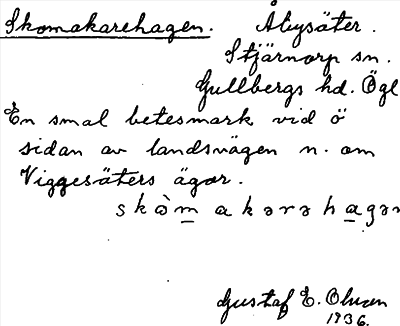 Skomakarehagen. Åbysäter.
Stjärnorp sn.
Gullbergs hd. Ögl
En smal betesmark vid ö
sidan av landsvägen n. om
Viggesäters ägor.
skò̀m akərəhagən
Gustaf E. Olsson
1936.